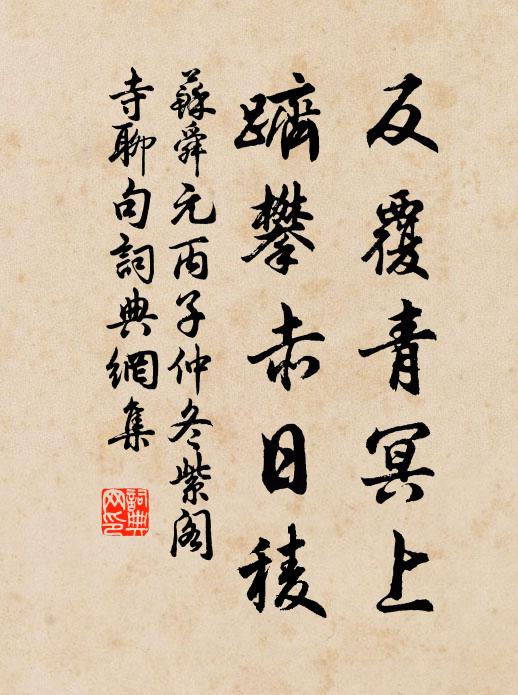 反覆青冥上
躋攀赤日稜
蘇舜元丙子仲冬紫閣
寺聊句詞典網集
詞典
网印